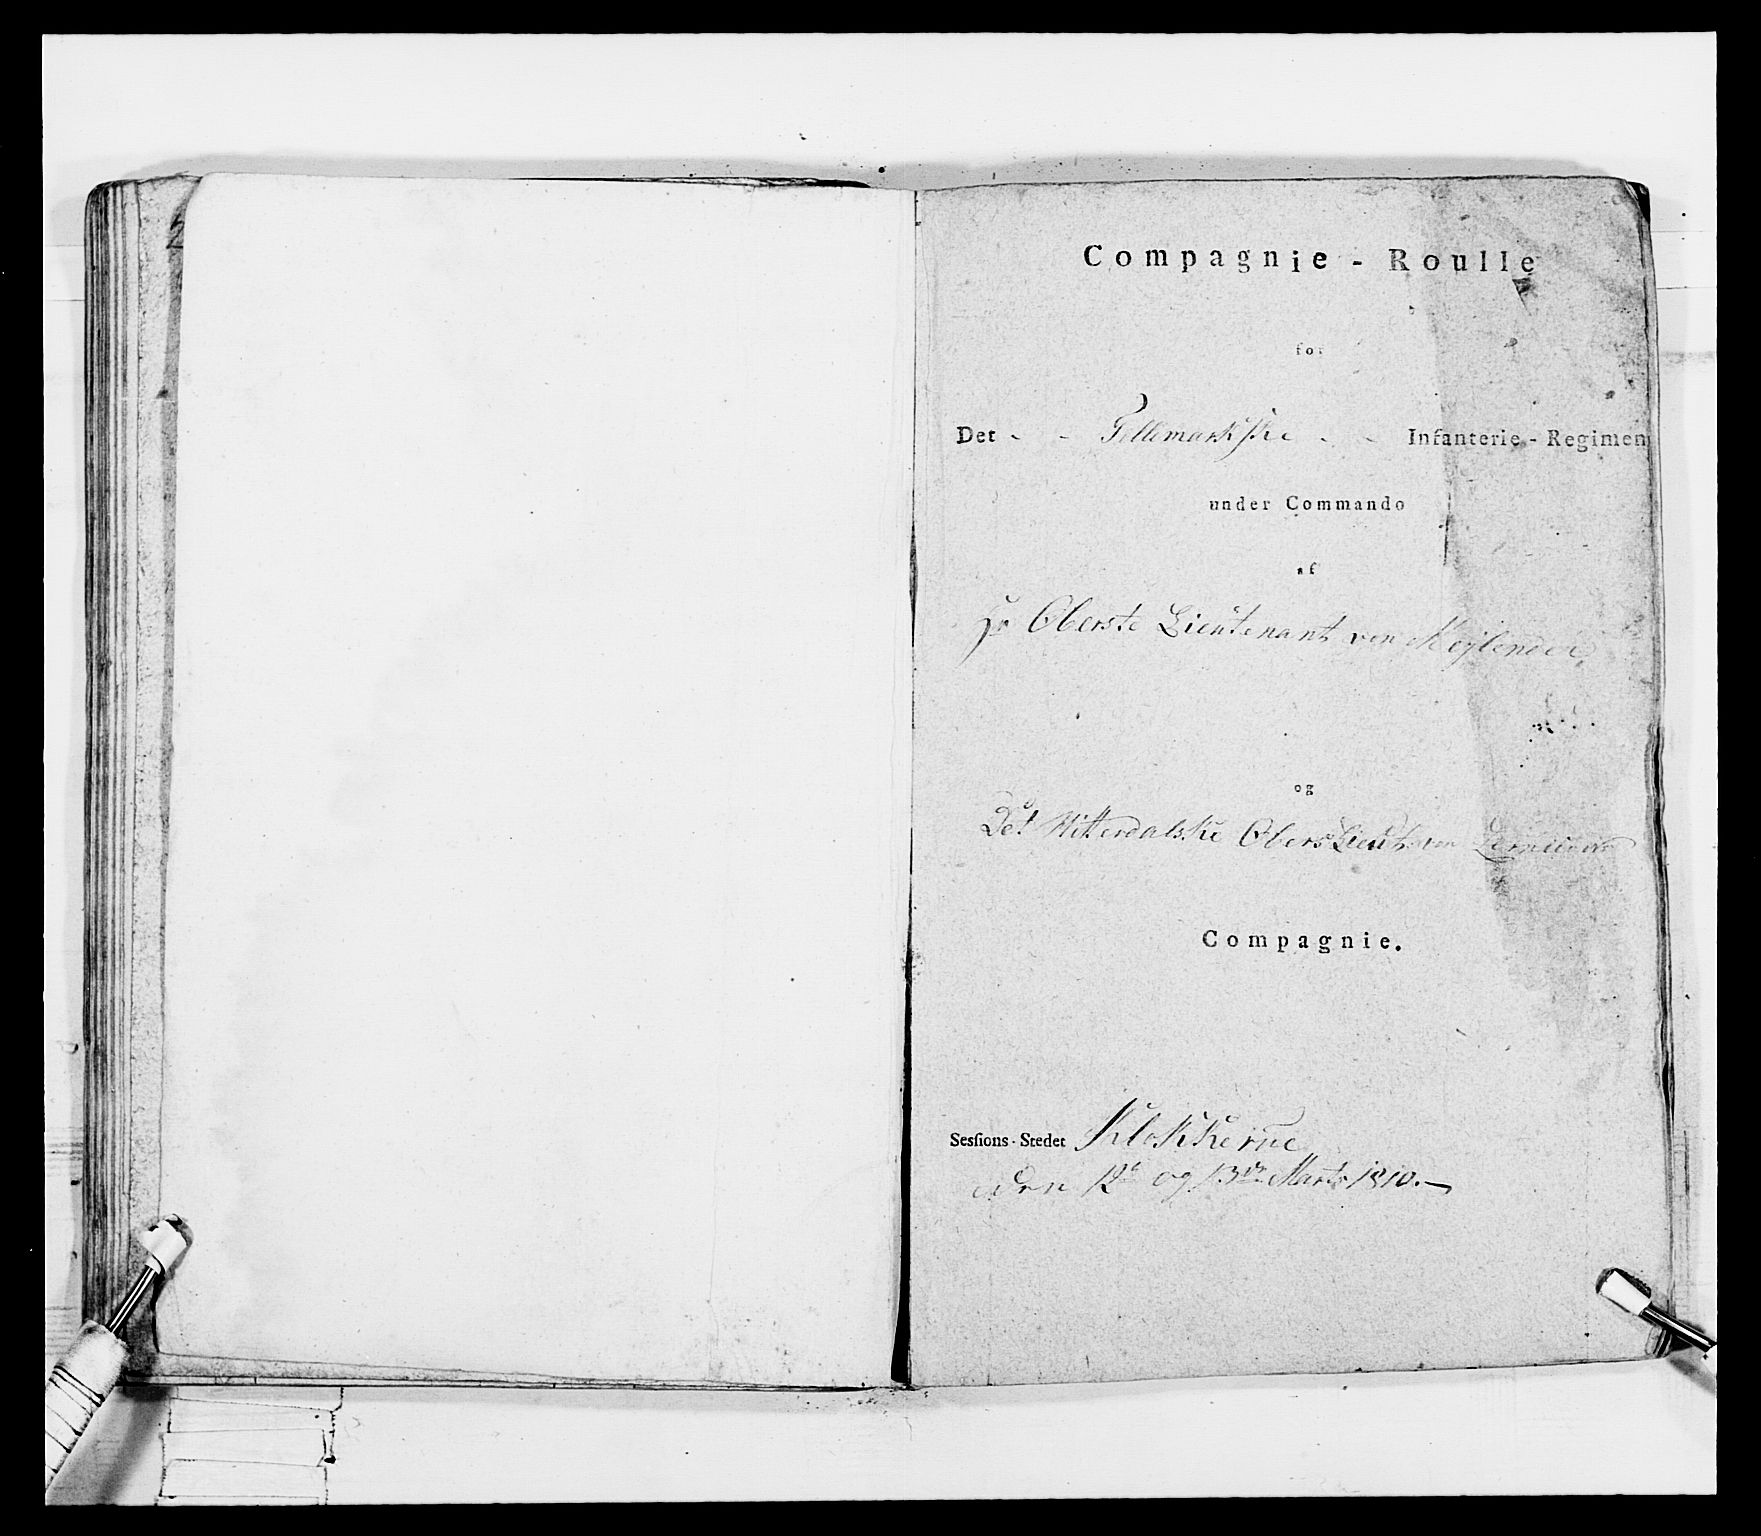 Compagnie - Roulle
for
Det - - Tellemarkske - - Infanterie - Regimen
under Commando
af
Hr Oberste Lieutenant von
og
Det Hitterdalske Obers Lieut: von
Compagnie.
Sessions-Stedet Klokkerne
den 12te og 13de Marts 1810.—